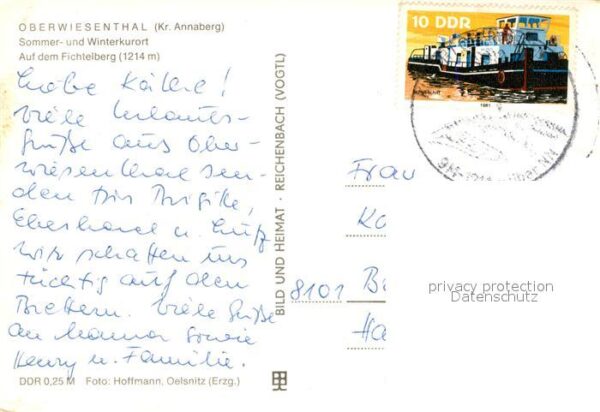 OBERWIESENTHAL (Kr. Annaberg)
Sommer- und Winterkurort
Auf dem Fichtelberg (1214 m)
Liebe Käthe!
Viele Urlaubs-
grüße aus Ober-
wiesenthal sen-
den Dir Brigitte,
Eberhard u. Lutz
wir schaffen uns
tüchtig auf den
Brettern. Viele Grüße
an Mama sowie
Henry u. Familie.
DDR 0,25 M Foto: Hoffmann, Oelsnitz (Erzg.)
BILD UND HEIMAT · REICHENBACH (VOGTL)
10 DDR
1981
Frau
8101
privacy protection
Datenschutz